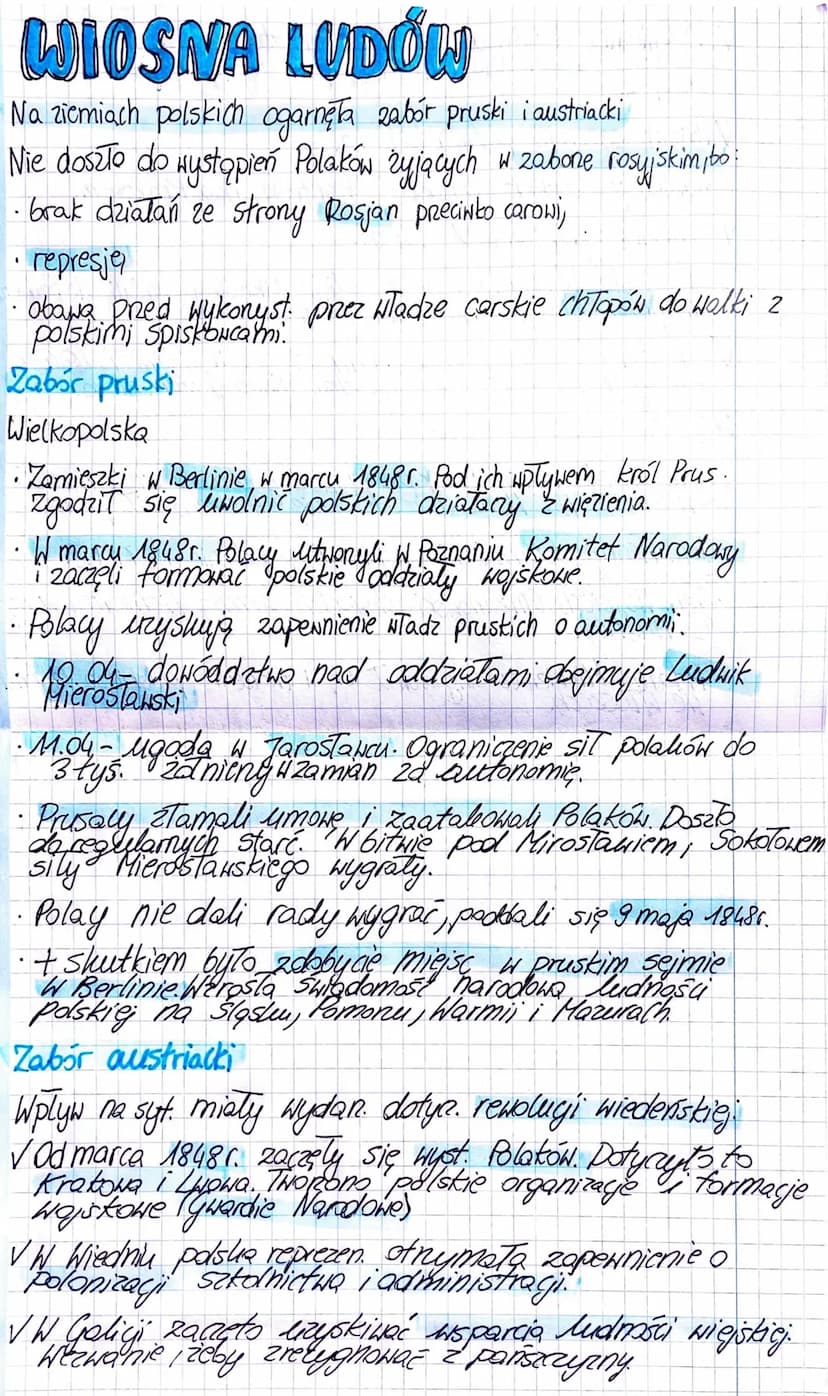 WIOSNA LUDÓW
Na ziemiach polskich ogarnęła zabór pruski i austriacki
Nie doszło do wystąpień Polaków żyjących w zaborze rosyjskim, bo:
· brak działań ze strony Rosjan przeciwko carowi,
· represje,
· obawa przed wykorzyst. przez władze carskie chłopów do walki z
polskimi spiskowcami.
Zabór pruski
Wielkopolska
· Zamieszki w Berlinie w marcu 1848r. Pod ich wpływem król Prus
zgodził się uwolnić polskich działaczy z więzienia.
· W marcu 1848r. Polacy utworzyli w Poznaniu Komitet Narodowy
i zaczęli formować polskie oddziały wojskowe.
· Polacy uzyskują zapewnienie władz pruskich o autonomii.
· 10.04- dowództwo nad oddziałami obejmuje Ludwik
Mierosławski
· 11.04- ugoda w Jarosławcu. Ograniczenie sił polaków do
3 tyś. żołnierzy w zamian za autonomię.
· Prusacy złamali umowę i zaatakowali Polaków. Doszło
do regularnych starć. W bitwie pod Mirosławiem i Sokołowem
siły Mierosławskiego wygrały.
· Polacy nie dali rady wygrać, poddali się 9 maja 1848r.
· + skutkiem było zdobycie miejsc w pruskim sejmie
w Berlinie. Wzrosła świadomość narodowa ludności
polskiej na Śląsku, Pomorzu, Warmii i Mazurach.
Zabór austriacki
Wpływ na syt. miały wydarz. dotycz. rewolucji wiedeńskiej.
√ Od marca 1848r. zaczęły się wyst. Polaków. Dotyczyło to
Krakowa i Lwowa. Tworzono polskie organizacje i formacje
wojskowe (Gwardie Narodowe)
√ W Wiedniu polska reprezen. otrzymała zapewnienie o
polonizacji szkolnictwa i administracji.
√ W Galicji zaczęto uzyskiwać wsparcia ludności wiejskiej.
Wezwanie, żeby zrezygnować z pańszczyzny.